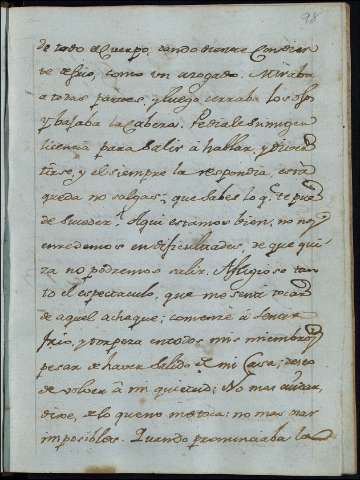 98
de todo el Cuerpo, dando diente con dien
te de frio, como un azogado. Miraba
a todas partes, y luego cerraba los ojos
y bajaba la Cabeza. Pediale su muger
licencia para Salir á hablar, y
y el siempre la respondia, está
queda no salgas; que sabes lo q.e te pue
de suceder? Aqui estamos bien, no nos
enredemos en dificultades, de que qui
za no podremos salir. Afligiose tan
to el espectaculo, que me sentí tocado
de aquel achaque; comenzé á sentir
frio, y torpeza en todos mis miembros;
pesar de haver Salido de mi Casa; deseo
de volver á mi quietud; No mas cuidar,
dixe, de lo que no me toca: no mas
imposibles. Quando pronunciaba la